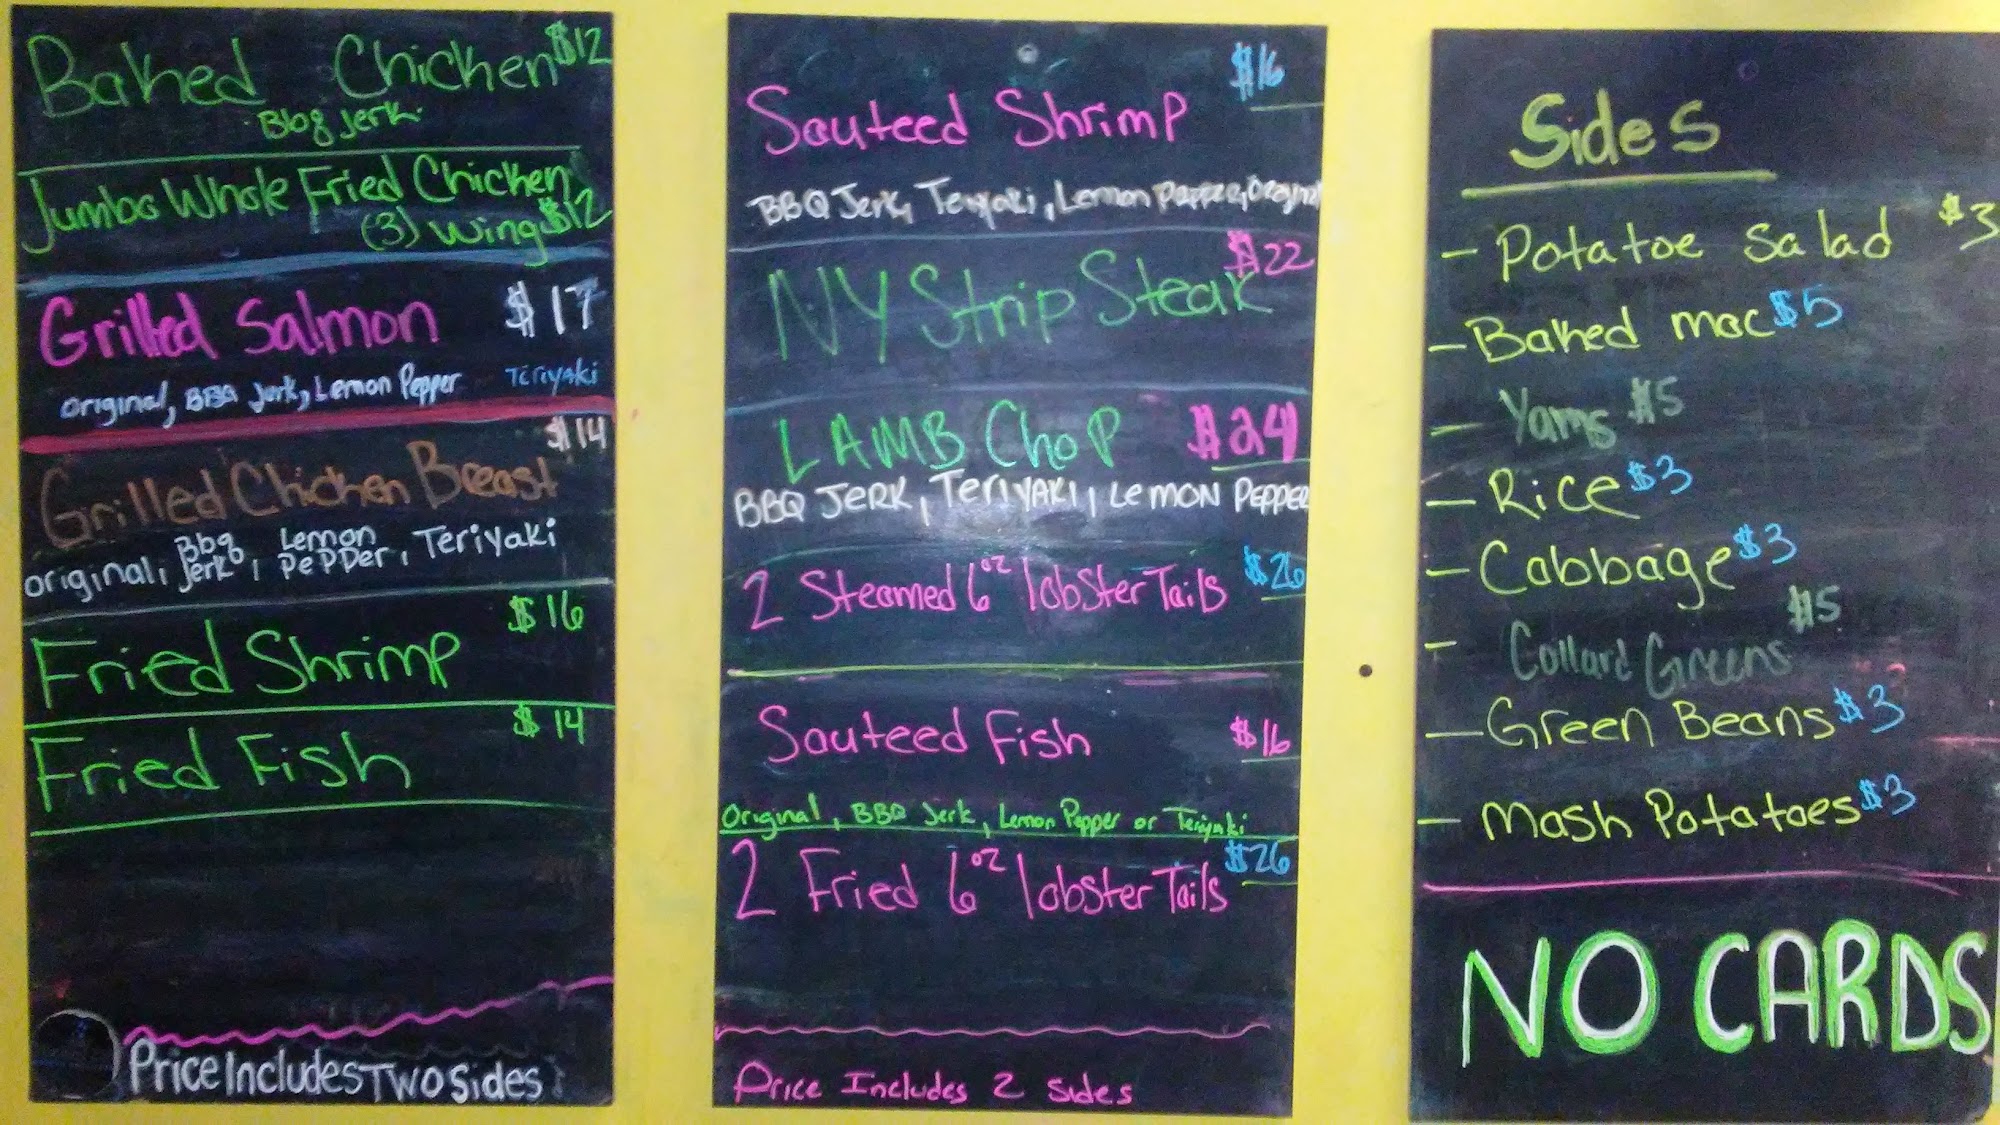 Baked Chicken $12
Bbq Jerk
Jumbo Whole Fried Chicken
(3) Wing $12
Grilled Salmon $17
original, BBQ Jerk, Lemon Pepper Teriyaki
$14
Grilled Chicken Breast
original, Bbq Jerk, Lemon Pepper, Teriyaki
Fried Shrimp $16
Fried Fish $14
Price Includes Two Sides
$16
Sauteed Shrimp
BBQ Jerk, Teriyaki, Lemon Pepper, Original
$22
NY Strip Steak
LAMB Chop $24
BBQ JERK, TERIYAKI, LEMON PEPPER
2 Steamed 6oz lobster Tails $26
Sauteed Fish $16
Original, BBQ Jerk, Lemon Pepper or Teriyaki
2 Fried 6oz lobster Tails $26
Price Includes 2 Sides
Sides
- Potatoe Salad $3
- Baked mac $5
- Yams $5
- Rice $3
- Cabbage $3
- Collard Greens $5
- Green Beans $3
- Mash Potatoes $3
NO CARDS